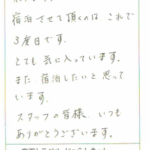 宿泊させて頂くのは これで
3度目です.
とても気に入っています.
また 宿泊したいと思って
います.
スタッフの皆様、いつも
ありがとうございます.